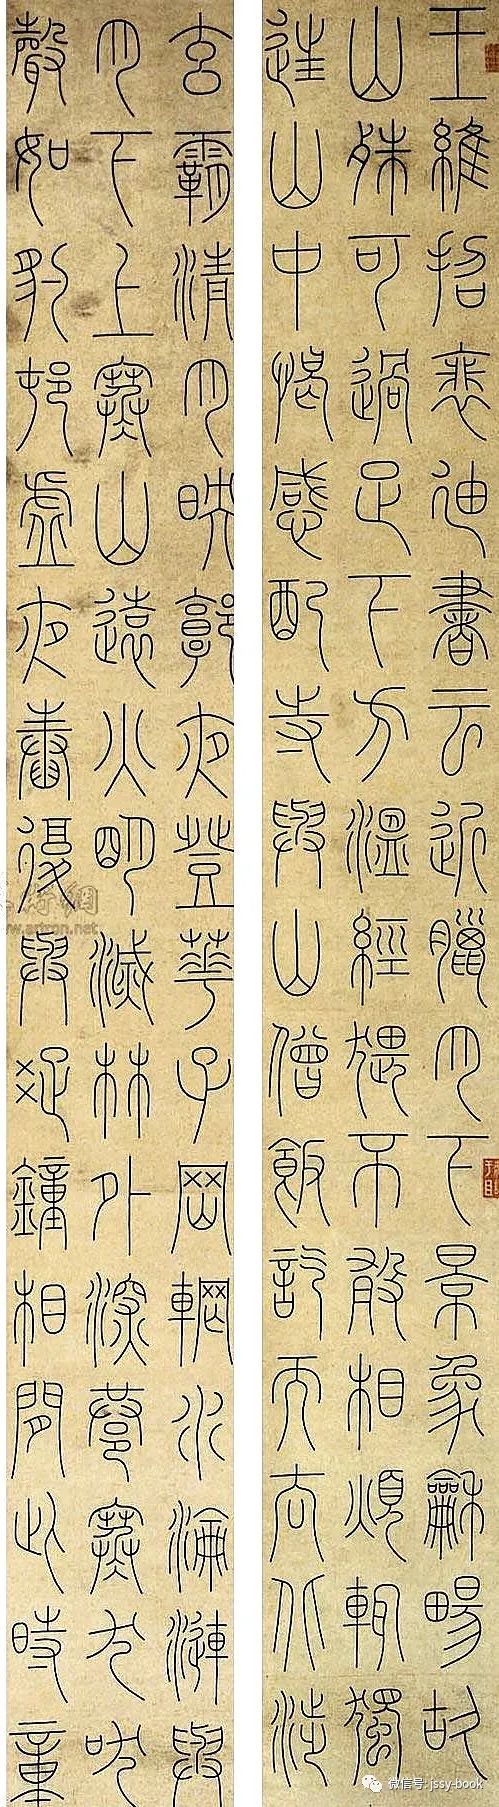 王維招裴迪書云近臘月下景象龢暢故
山殊可過足下方溫經猥不敢相煩輒獨
往山中愒感配寺與山僧飯訖而去北涉
玄霸清月映郭夜登華子岡輞水淪漣與
月下上寒山遠火明滅林外深巷寒犬吠
聲如豹邨虛夜舂復與疏鐘相間此時童
w.artron.net
微信号: jssy-book